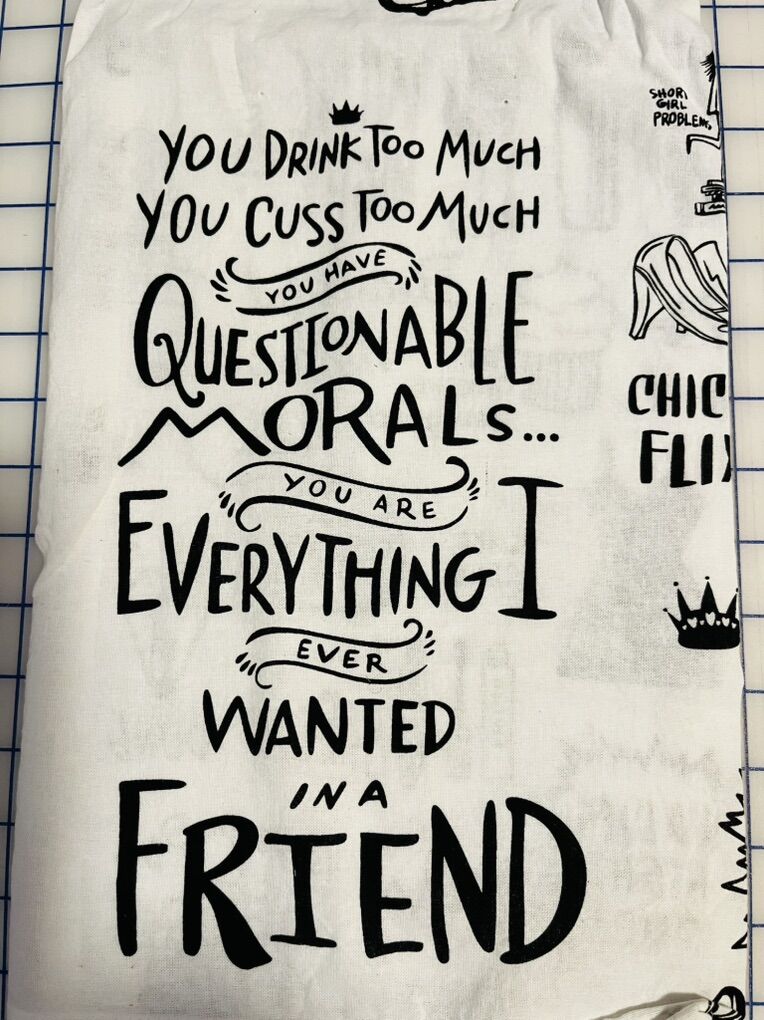 YOU DRINK TOO MUCH
YOU CUSS TOO MUCH
YOU HAVE
QUESTIONABLE
MORALS...
YOU ARE
EVERYTHING I
EVER
WANTED
IN A
FRIEND
SHORT
GIRL
PROBLEMS
CHIC
FLI